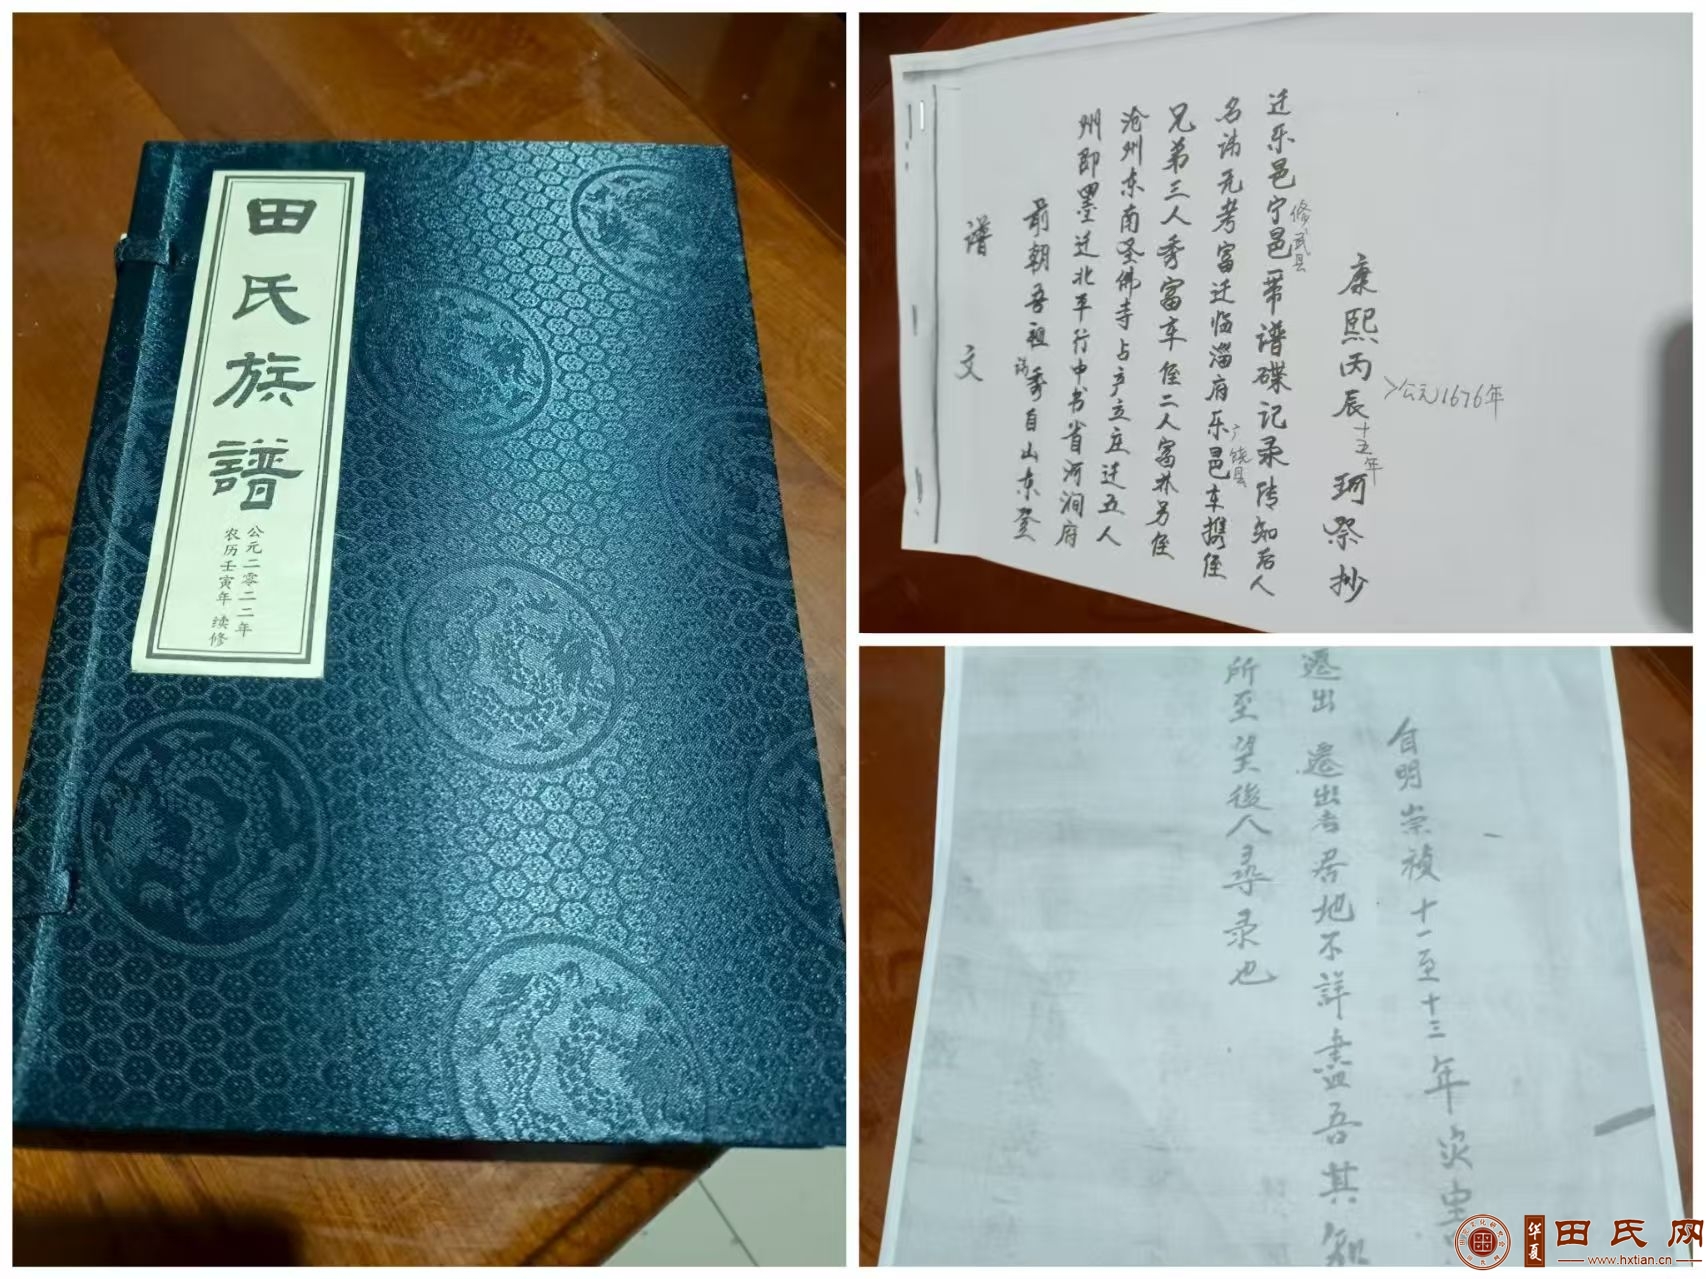 田氏族譜
公元二零二二年
农历壬寅年 续修
谱文
前朝吾祖讳秀自山东登
州即墨迁北平行中书省河涧府
沧州东南圣佛寺占产立庄迁五人
兄弟三人秀富车侄二人富林另侄
名讳无考富迁临淄府乐邑车携侄
广饶县
迁乐邑宁邑带谱碟记录传知后人
修武县
康熙丙辰十五年珂祭抄
公元1676年
自明崇禎十一至十三年灾虫
遷出 遷出者居地不詳盡吾其知
所至望後人尋录也
华夏
田氏网
www.hxtian.cn